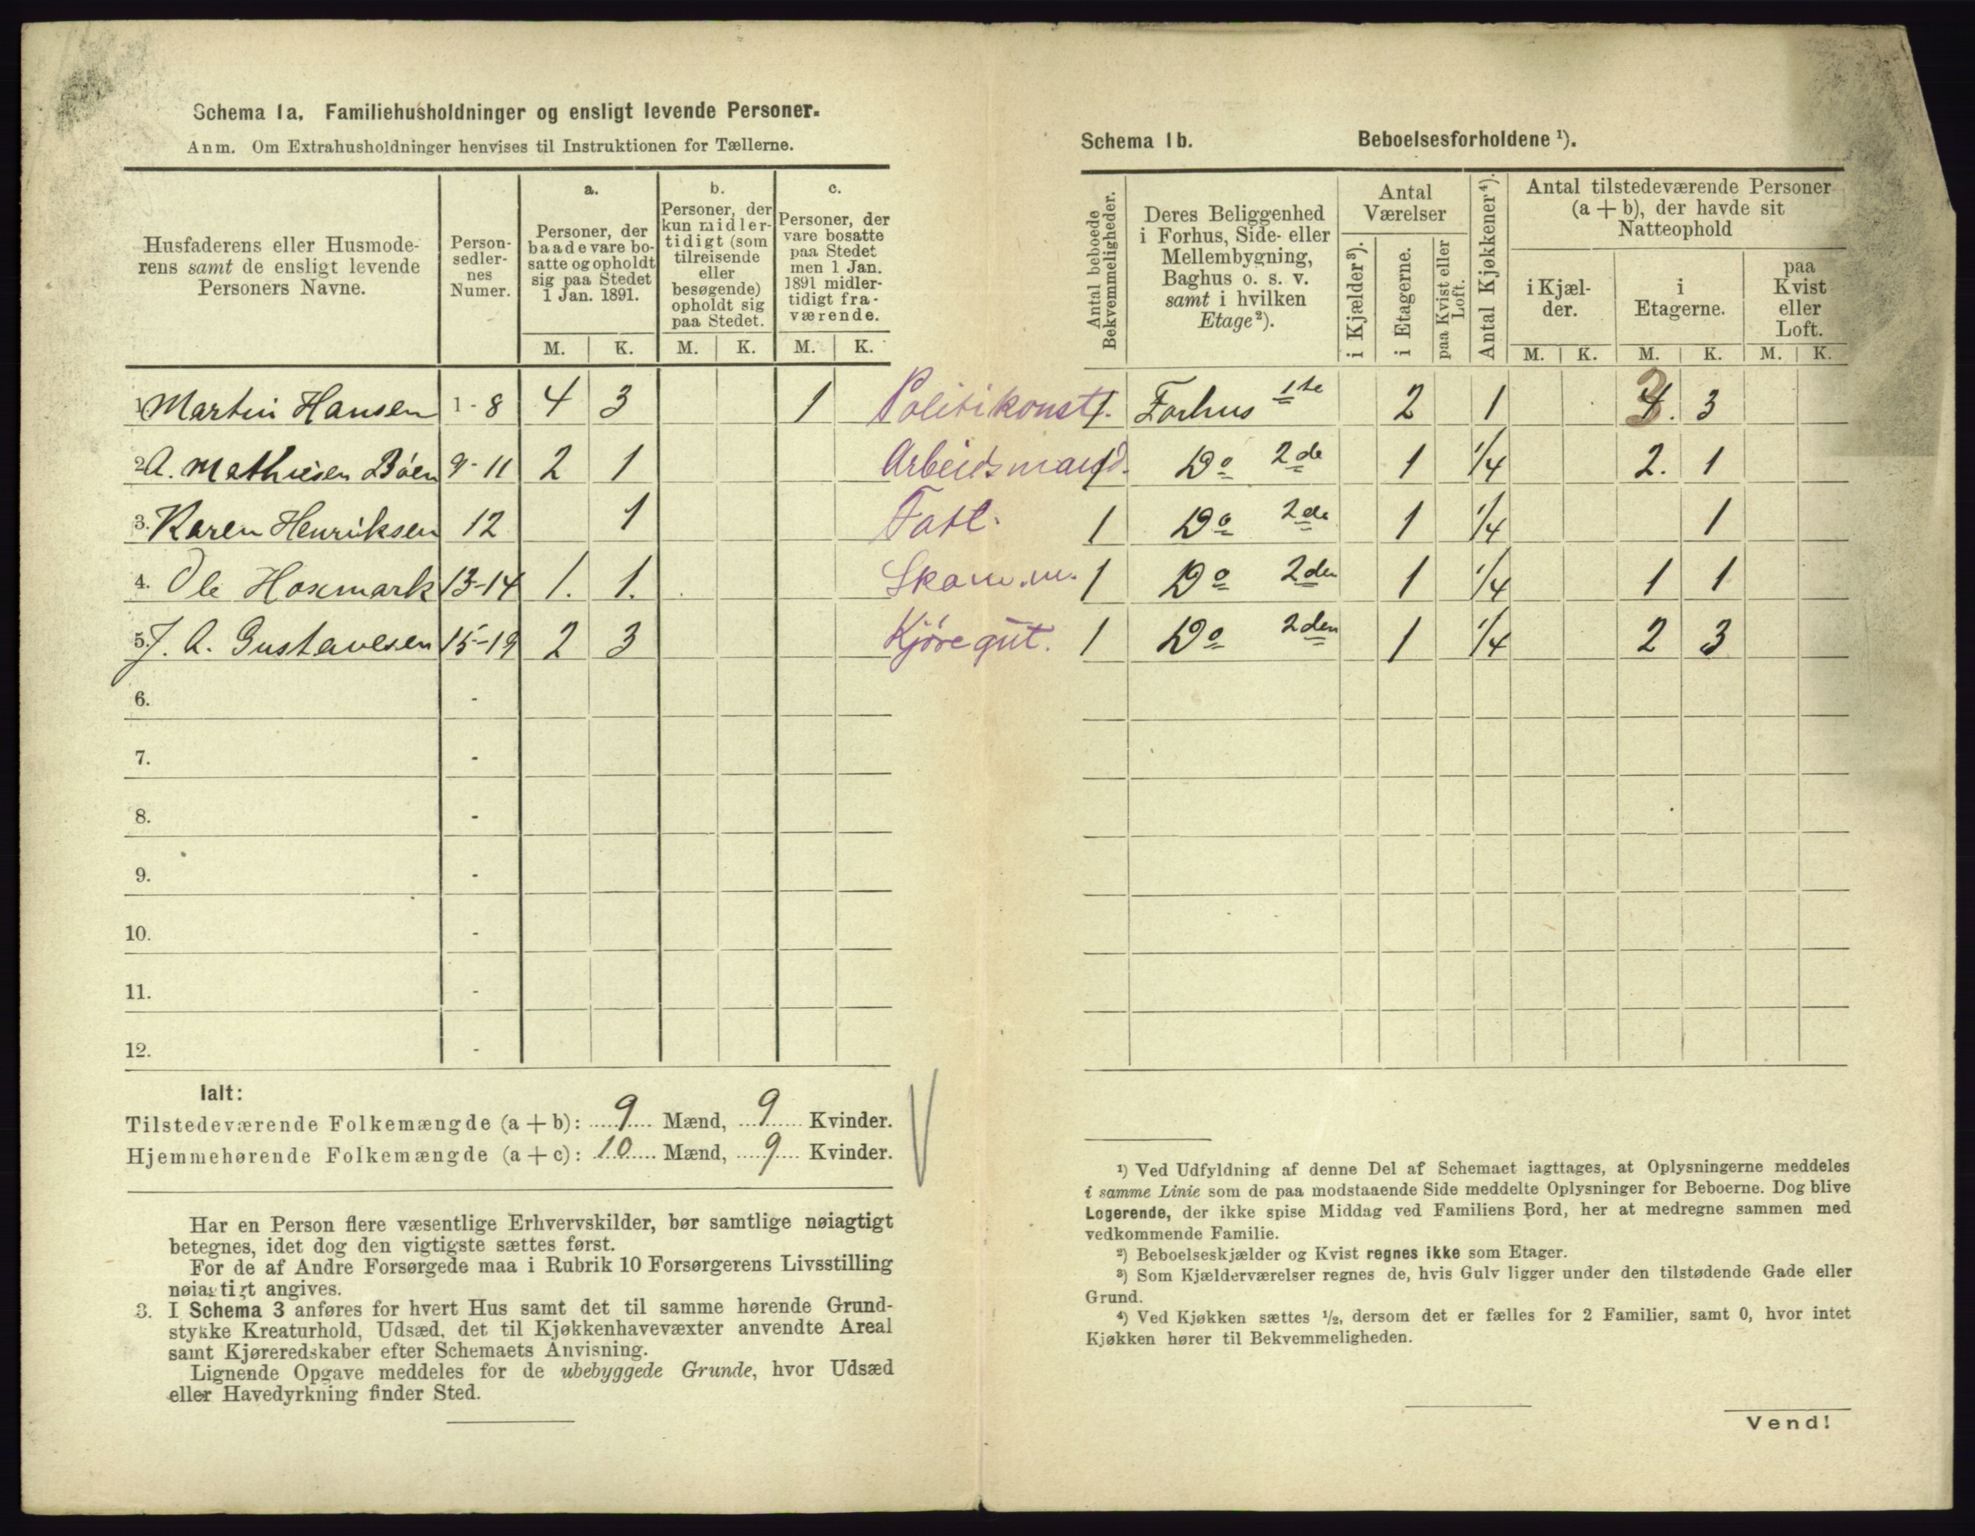 Schema 1a. Familiehusholdninger og ensligt levende Personer.
Anm. Om Extrahusholdninger henvises til Instruktionen for Tællerne.
Husfaderens eller Husmode-
rens samt de ensligt levende
Personers Navne.
Person-
sedler-
nes
Numer.
a.
Personer, der
baade vare bo-
satte og opholdt
sig paa Stedet
1 Jan. 1891.
b.
Personer, der
kun midler-
tidigt (som
tilreisende
eller
besøgende)
opholdt sig
paa Stedet.
c.
Personer, der
vare bosatte
paa Stedet
men 1 Jan.
1891 midler-
tidigt fra-
værende.
M. K. M. K. M. K.
1 Martin Hansen 1 - 8 4 3 1 Politikonst.
2 A. Mathiesen Böen 9 - 11 2 1 Arbeidsmand.
3. Karen Henriksen 12 1 Fatt.
4. Ole Hoxmark 13-14 1. 1.
5. J. A. Gustavesen 15-19 2 3 Kjøregut.
6. -
7. -
8. -
9. -
10. -
11. -
12. -
Ialt:
Tilstedeværende Folkemængde (a + b): 9 Mænd, 9 Kvinder.
Hjemmehørende Folkemængde (a + c): 10 Mænd, 9 Kvinder.
Har en Person flere væsentlige Erhvervskilder, bør samtlige nøiagtigt
betegnes, idet dog den vigtigste sættes først.
For de af Andre Forsørgede maa i Rubrik 10 Forsørgerens Livsstilling
nøiagtigt angives.
3. I Schema 3 anføres for hvert Hus samt det til samme hørende Grund-
stykke Kreaturhold, Udsæd, det til Kjøkkenhavevæxter anvendte Areal
samt Kjøreredskaber efter Schemaets Anvisning.
Lignende Opgave meddeles for de ubebyggede Grunde, hvor Udsæd
eller Havedyrkning finder Sted.
Schema 1b. Beboelsesforholdene ¹).
Antal beboede
Bekvemmeligheder.
Deres Beliggenhed
i Forhus, Side- eller
Mellembygning,
Baghus o. s. v.
samt i hvilken
Etage²).
Antal
Værelser
i Kjælder³).
i Etagerne.
paa Kvist eller
Loft.
Antal Kjøkkener⁴).
Antal tilstedeværende Personer
(a + b), der havde sit
Natteophold
i Kjæl-
der.
i
Etagerne.
paa
Kvist
eller
Loft.
M. K. M. K. M. K.
1 Forhus 1te 2 1 4. 3
1 Do 2de 1 1/4 2. 1
1 Do 2de 1 1/4 1
1 Do 2den 1 1/4 1 1
1 Do 2den 1 1/4 2 3
¹) Ved Udfyldning af denne Del af Schemaet iagttages, at Oplysningerne meddeles
i samme Linie som de paa modstaaende Side meddelte Oplysninger for Beboerne. Dog blive
Logerende, der ikke spise Middag ved Familiens Bord, her at medregne sammen med
vedkommende Familie.
²) Beboelseskjælder og Kvist regnes ikke som Etager.
³) Som Kjælderværelser regnes de, hvis Gulv ligger under den tilstødende Gade eller
Grund.
⁴) Ved Kjøkken sættes ½, dersom det er fælles for 2 Familier, samt 0, hvor intet
Kjøkken hører til Bekvemmeligheden.
Vend!